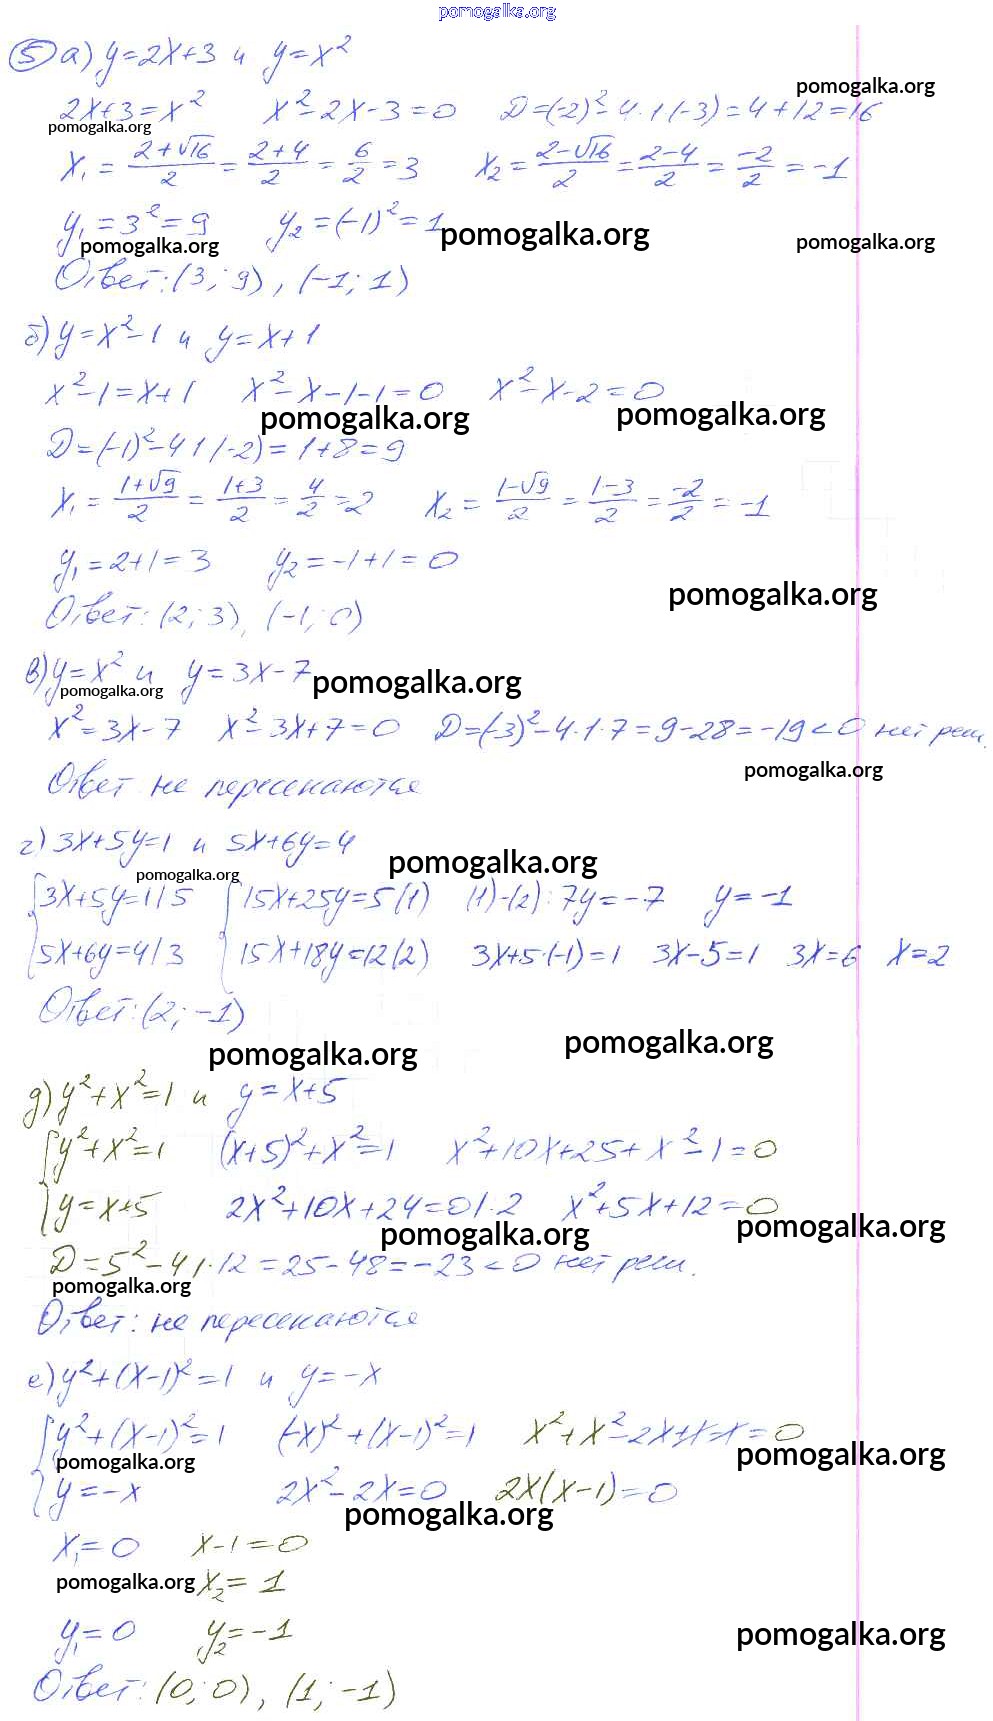 pomogalka.org
5 а) y=2x+3 и y=x²
pomogalka.org
2x+3=x² x²-2x-3=0 D=(-2)²-4·1(-3)=4+12=16
pomogalka.org
x₁=(2+√16)/2=(2+4)/2=6/2=3 x₂=(2-√16)/2=(2-4)/2=-2/2=-1
y₁=3²=9 y₂=(-1)²=1
pomogalka.org pomogalka.org pomogalka.org
Ответ: (3; 9), (-1; 1)
б) y=x²-1 и y=x+1
x²-1=x+1 x²-x-1-1=0 x²-x-2=0
pomogalka.org pomogalka.org
D=(-1)²-4·1(-2)=1+8=9
x₁=(1+√9)/2=(1+3)/2=4/2=2 x₂=(1-√9)/2=(1-3)/2=-2/2=-1
y₁=2+1=3 y₂=-1+1=0
pomogalka.org
Ответ: (2; 3), (-1; 0)
в) y=x² и y=3x-7
pomogalka.org pomogalka.org
x²=3x-7 x²-3x+7=0 D=(-3)²-4·1·7=9-28=-19<0 нет реш.
pomogalka.org
Ответ не пересекаются
г) 3x+5y=1 и 5x+6y=4
pomogalka.org pomogalka.org
{3x+5y=1/5 {15x+25y=5(1) (1)-(2): 7y=-7 y=-1
5x+6y=4/3 15x+18y=12(2) 3x+5·(-1)=1 3x-5=1 3x=6 x=2
Ответ: (2; -1)
pomogalka.org pomogalka.org
д) y²+x²=1 и y=x+5
{y²+x²=1 (x+5)²+x²=1 x²+10x+25+x²-1=0
y=x+5 2x²+10x+24=0/·2 x²+5x+12=0
pomogalka.org pomogalka.org
D=5²-4·1·12=25-48=-23<0 нет реш.
pomogalka.org
Ответ: не пересекаются
е) y²+(x-1)²=1 и y=-x
{y²+(x-1)²=1 (-x)²+(x-1)²=1 x²+x²-2x+1-1=0
pomogalka.org pomogalka.org
y=-x 2x²-2x=0 2x(x-1)=0
pomogalka.org
x₁=0 x-1=0
pomogalka.org x₂=1
y₁=0 y₂=-1
pomogalka.org
Ответ: (0; 0), (1; -1)